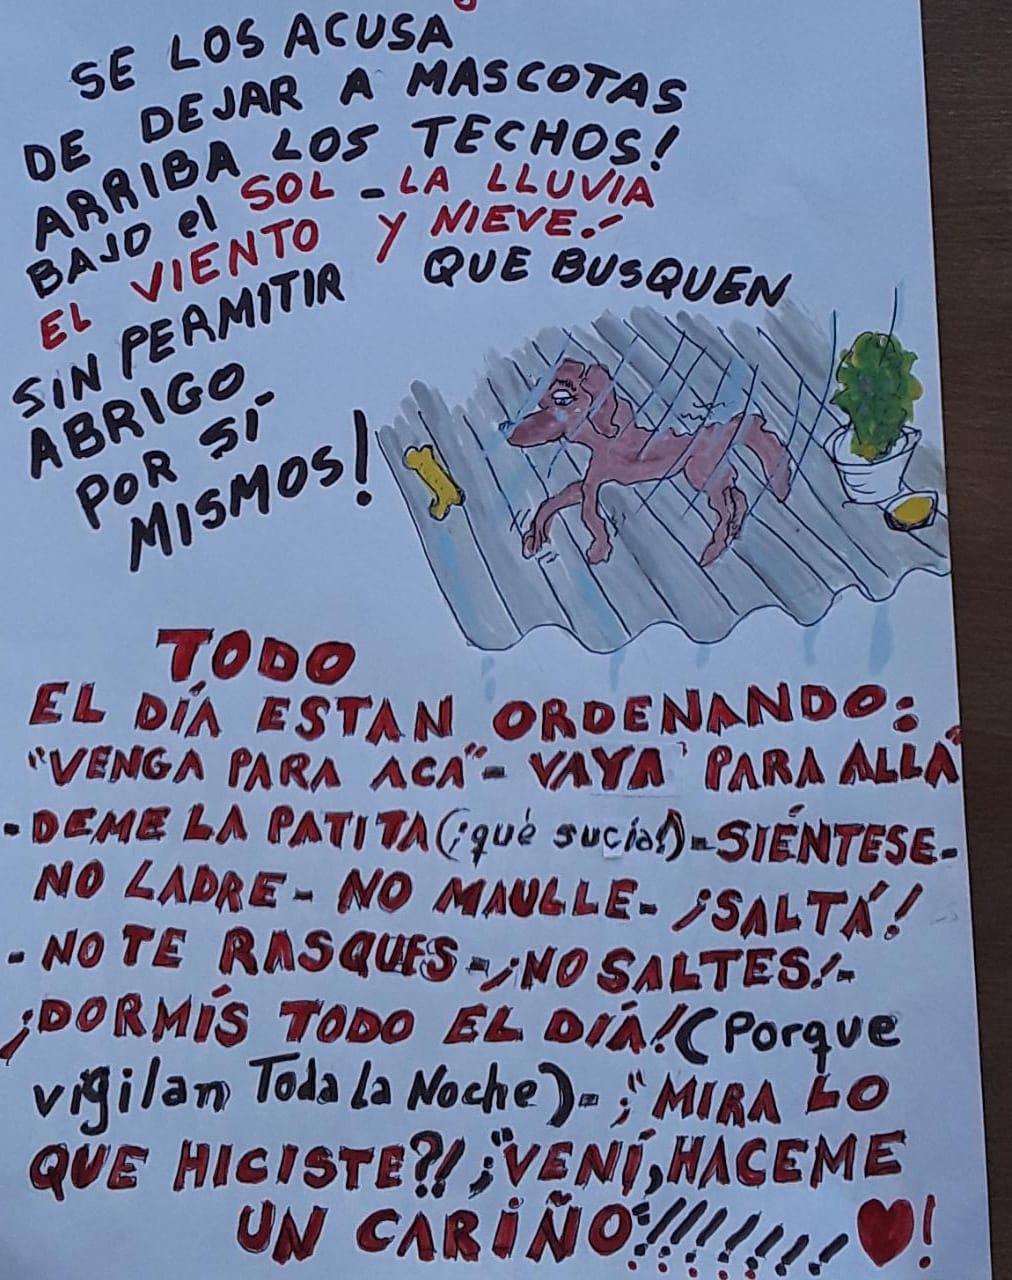 SE LOS ACUSA
DE DEJAR A MASCOTAS
ARRIBA LOS TECHOS!
BAJO el SOL - LA LLUVIA
EL VIENTO Y NIEVE!
SIN PERMITIR QUE BUSQUEN
ABRIGO
POR SÍ
MISMOS!
TODO
EL DÍA ESTAN ORDENANDO:
"VENGA PARA ACA" - VAYA PARA ALLA"
- DEME LA PATITA (¡qué sucia!) - SIÉNTESE -
NO LADRE - NO MAULLE - ¡SALTÁ!
- NO TE RASQUES - ¡NO SALTES! -
¡DORMÍS TODO EL DÍA! (Porque
vigilan Toda la Noche) - ¡"MIRA LO
QUE HICISTE?! ¡"VENÍ, HACEME
UN CARIÑO"!!!!!!!! !